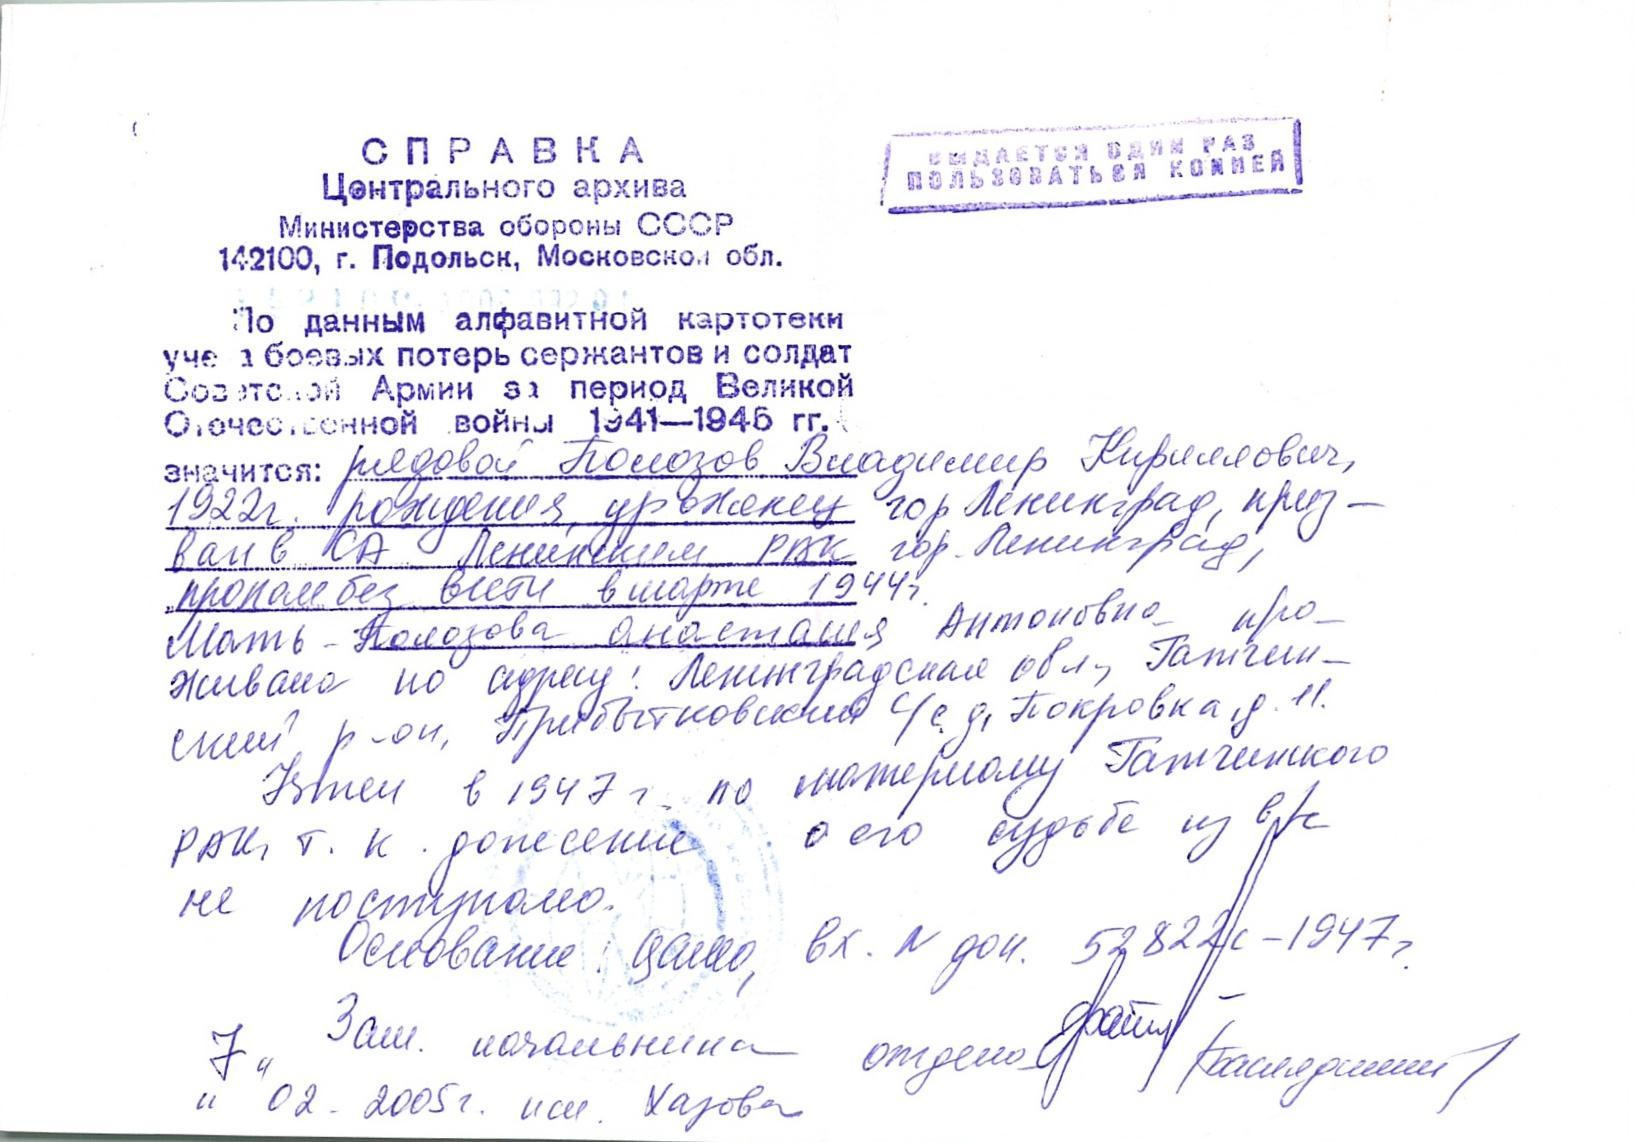 СПРАВКА
Центрального архива
Министерства обороны СССР
142100, г. Подольск, Московской обл.
ВЫДАЕТСЯ ОДИН РАЗ
ПОЛЬЗОВАТЬСЯ КОПИЕЙ
По данным алфавитной картотеки
учета боевых потерь сержантов и солдат
Советской Армии за период Великой
Отечественной войны 1941—1945 гг.
значится: рядовой Полозов Владимир Кириллович,
1922г. рождения, уроженец гор Ленинград, приз-
ван в СА Ленинским РВК гор. Ленинград,
пропал без вести в марте 1944г.
Мать - Полозова Анастасия Антоновна про-
живала по адресу: Ленинградская обл, Гатчин-
ский р-он, Прибытковский с/с, д. Покровка, д. 11.
Учтен в 1947 г. по материалу Гатчинского
РВК, т. к. донесение о его судьбе из в/ч
не поступало.
Основание: ЦАМО, вх. N дон. 52822с-1947г.
Зам. начальника отдела
"7"
" 02 - 2005г. исп. Хазова